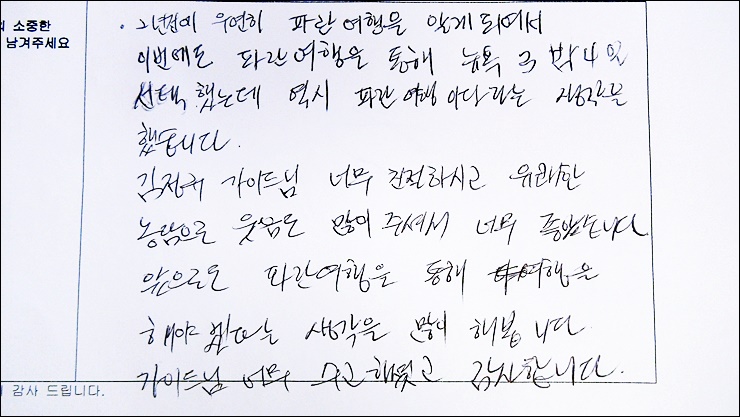 의 소중한
남겨주세요
· 2년전에 우연히 파란여행을 알게 되어서
이번에도 파란여행을 통해 뉴욕 3박4일
선택했는데 역시 파란여행이다라는 생각을
했습니다.
가이드님 너무 친절하시고 유쾌한
농담으로 웃음도 많이 주셔서 너무 좋았습니다
앞으로도 파란여행을 통해 여행을
해야 겠다는 생각을 많이 해봅니다.
가이드님 너무 수고했었고 감사합니다.
감사 드립니다.